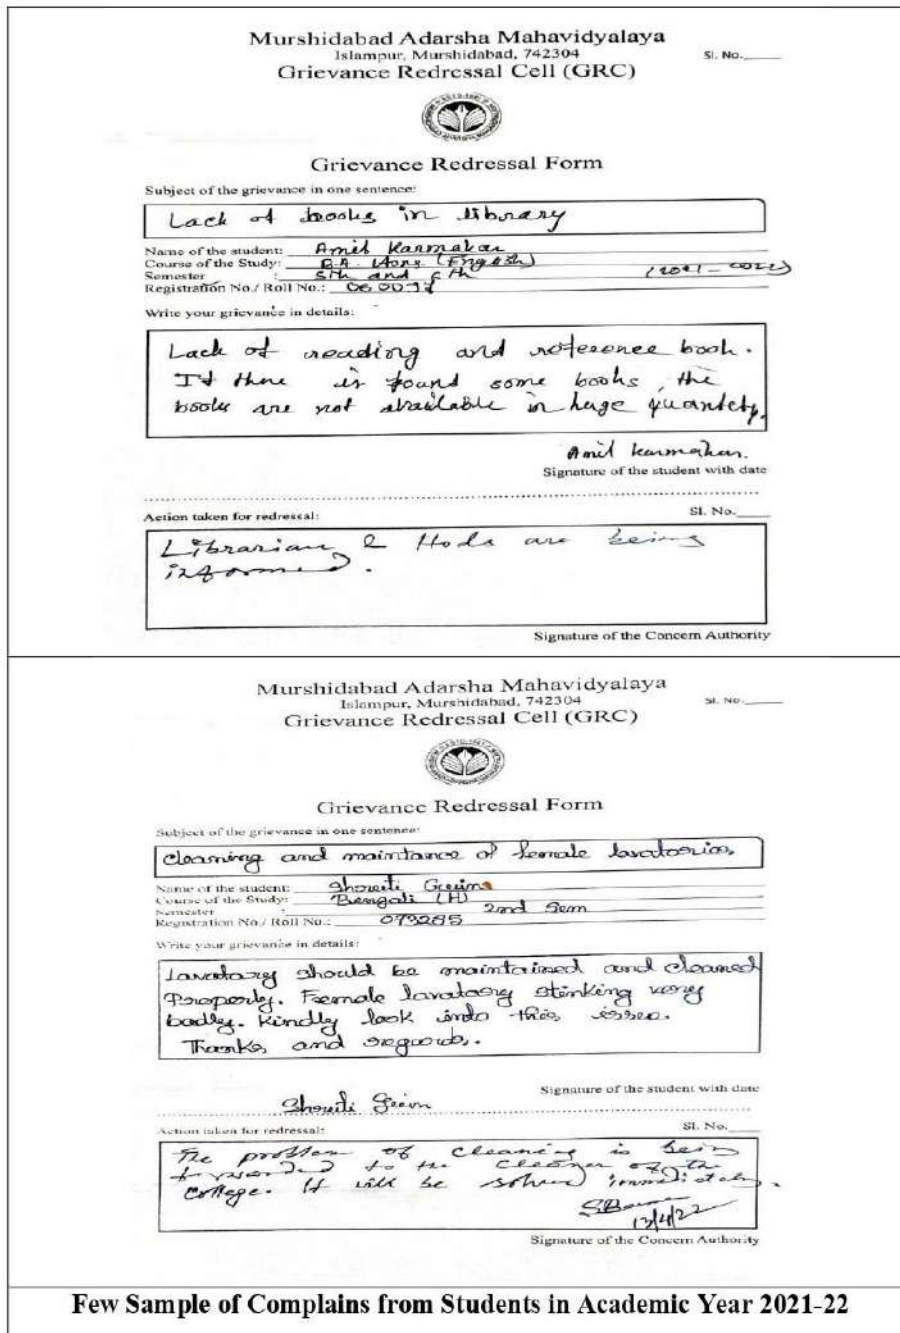 Murshidabad Adarsha Mahavidyalaya
Islampur, Murshidabad, 742304
Sl. No.
Grievance Redressal Cell (GRC)
Grievance Redressal Form
Subject of the grievance in one sentence:
Lack of books in library
Name of the student: Amit Karmakar
Course of the Study: B.A. Hons (English)
Semester : 5th and 6th (2021-2022)
Registration No./ Roll No.:
Write your grievance in details:
Lack of reading and reference book.
If there is found some books, the
books are not available in huge quantety.
Amit Karmakar.
Signature of the student with date
Action taken for redressal: Sl. No.
Librarian & Hods are being
informed.
Signature of the Concern Authority
Murshidabad Adarsha Mahavidyalaya
Islampur, Murshidabad, 742304
Sl. No.
Grievance Redressal Cell (GRC)
Grievance Redressal Form
Subject of the grievance in one sentence:
Cleaning and maintance of female lavatories
Name of the student:
Course of the Study: Bengali (H)
Semester : 2nd Sem
Registration No./ Roll No.: 073285
Write your grievance in details:
Lavatory should be maintained and cleaned
Properly. Female lavatory stinking very
badly. Kindly look into this issue.
Thanks and regards.
Signature of the student with date
Action taken for redressal: Sl. No.
The problem of cleaning is being
forwarded to the cleaner of the
college. It will be solved immediately.
13/4/22
Signature of the Concern Authority
Few Sample of Complains from Students in Academic Year 2021-22